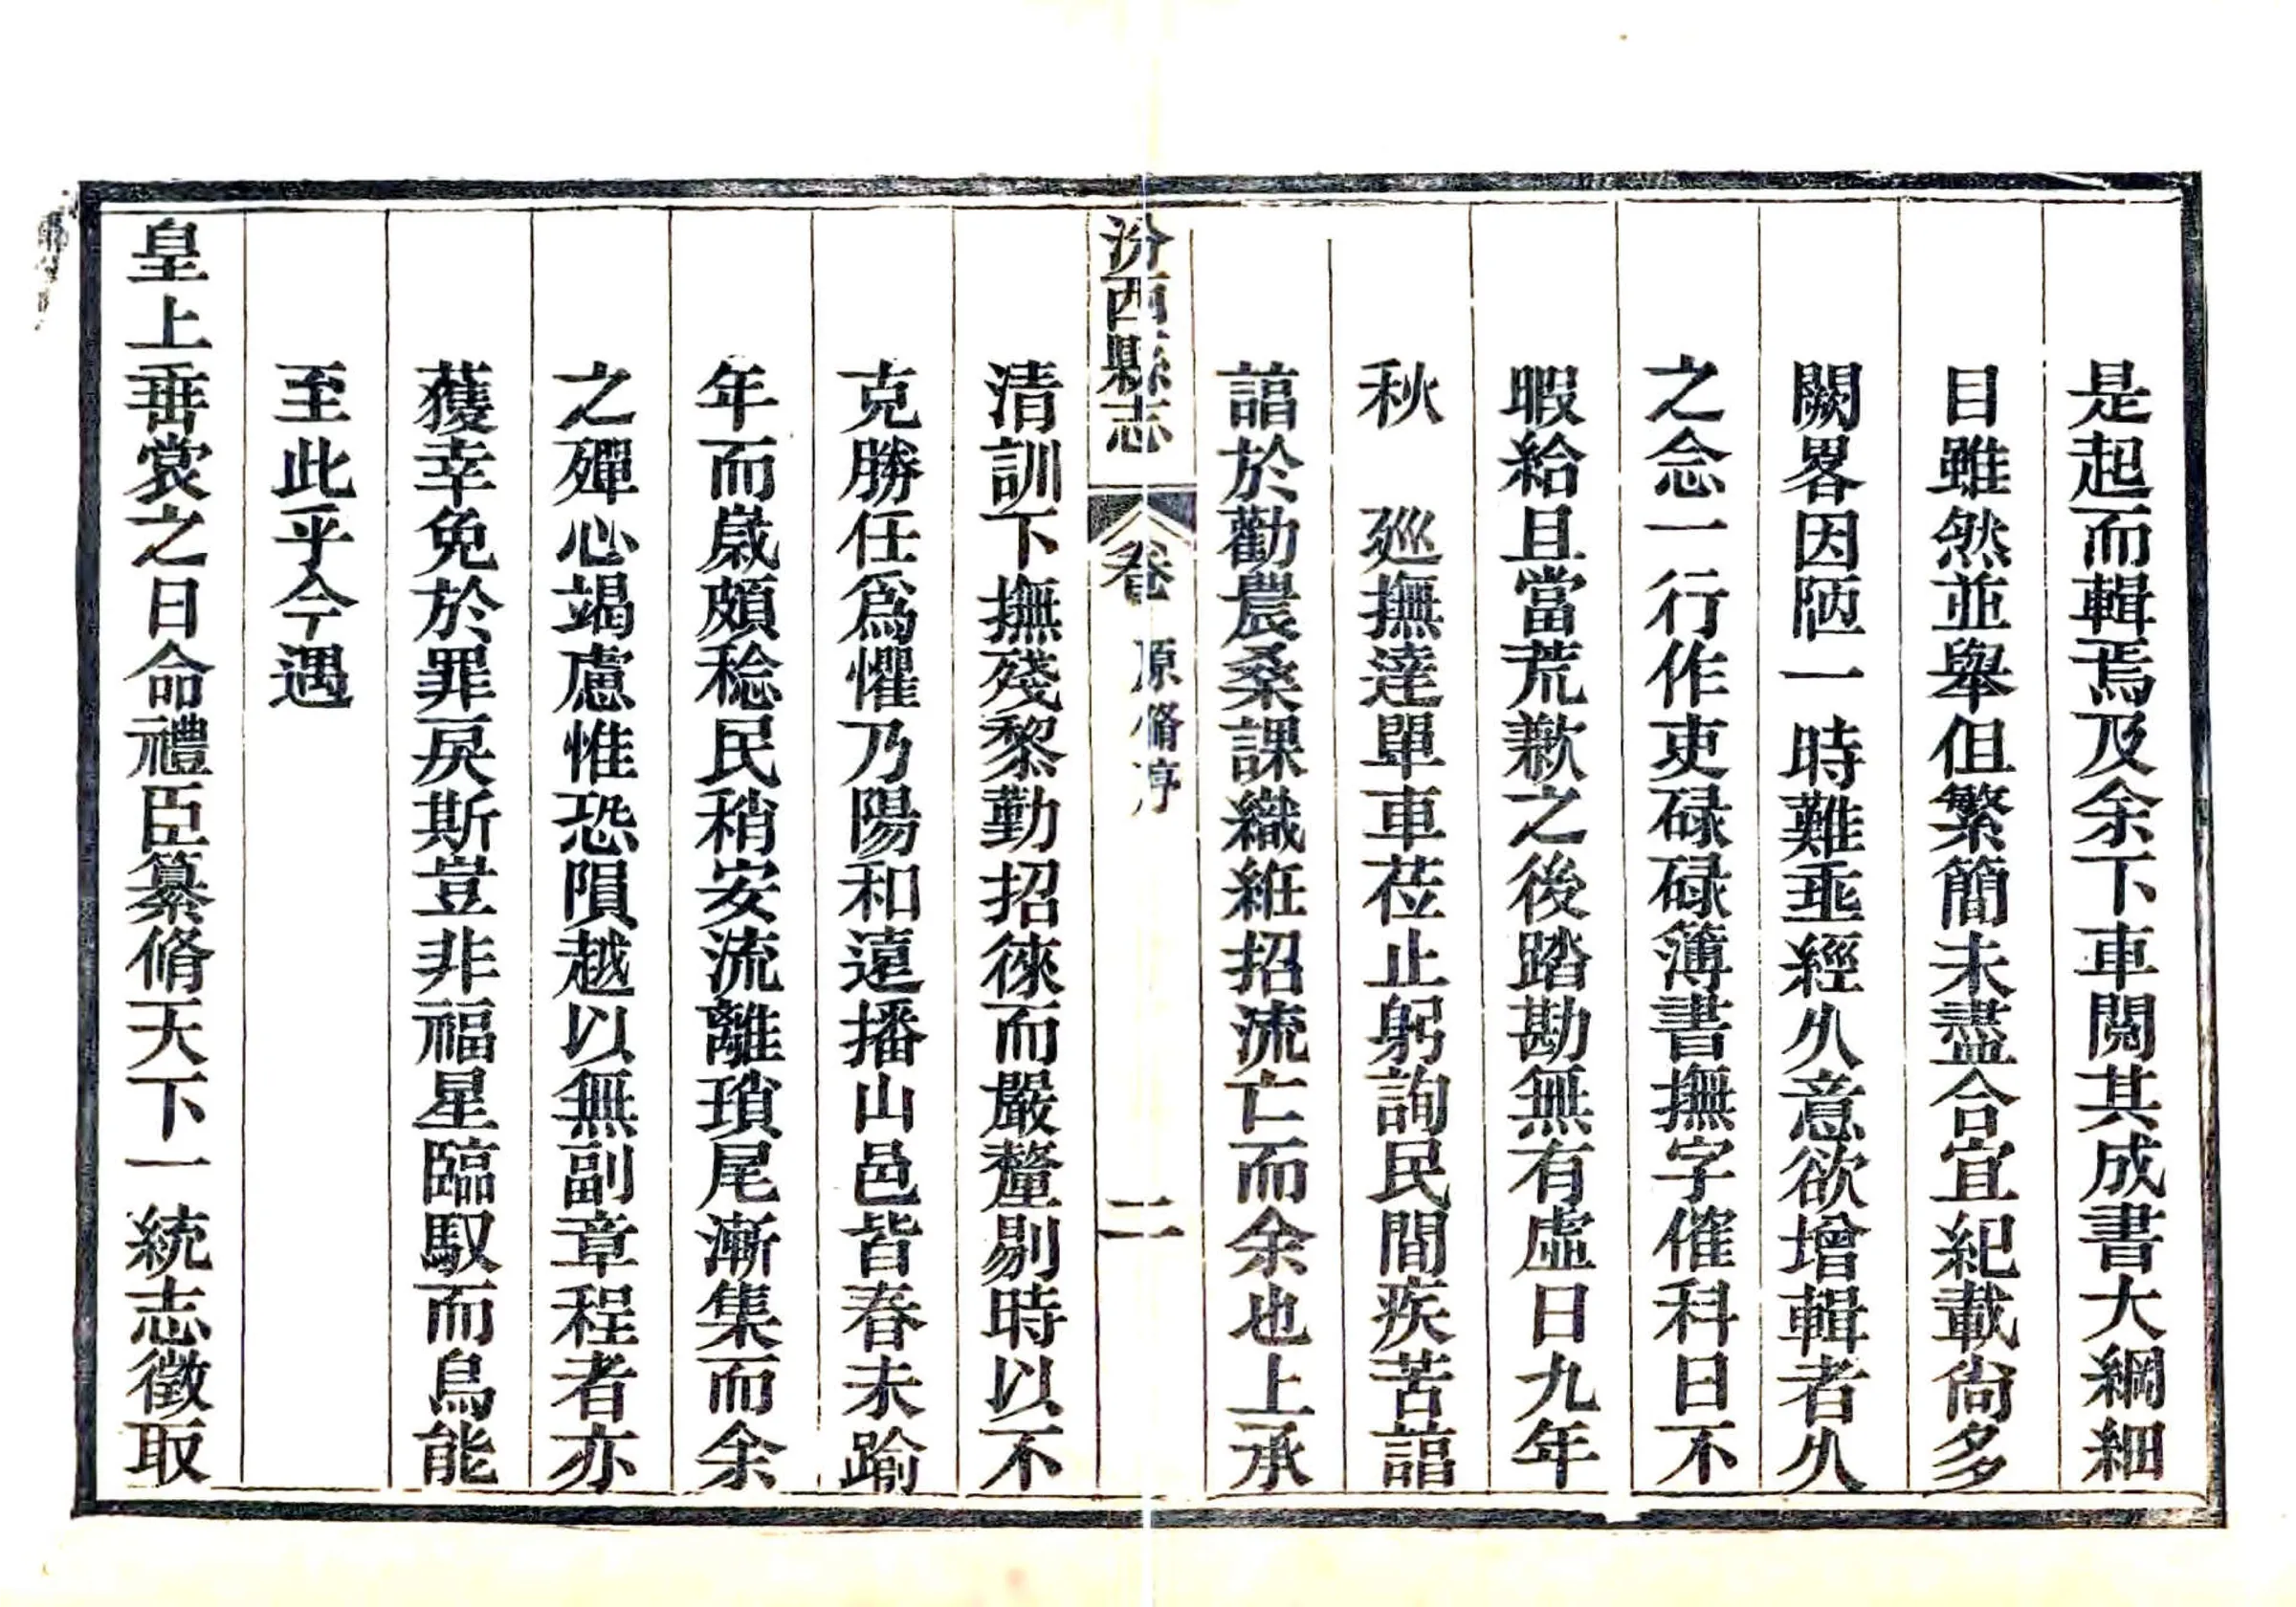 是起而輯焉及余下車閱其成書大綱細
目雖然並舉但繁簡未盡合宜紀載尙多
闕畧因陋一時難垂經久意欲增輯者久
之念一行作吏碌碌簿書撫字催科日不
暇給且當荒歉之後踏勘無有虛日九年
秋　廵撫達單車莅止躬詢民間疾苦諳
諳於勸農桑課織絍招流亡而余也上承
汾西縣志　卷　原脩序　二
清訓下撫殘黎勤招徠而嚴釐剔時以不
克勝任爲懼乃陽和遠播山邑皆春未踰
年而嵗頗稔民稍安流離瑣尾漸集而余
之殫心竭慮惟恐隕越以無副章程者亦
獲幸免於罪戾斯豈非福星臨馭而鳥能
至此乎今遇
皇上垂裳之日命禮臣纂脩天下一統志徵取